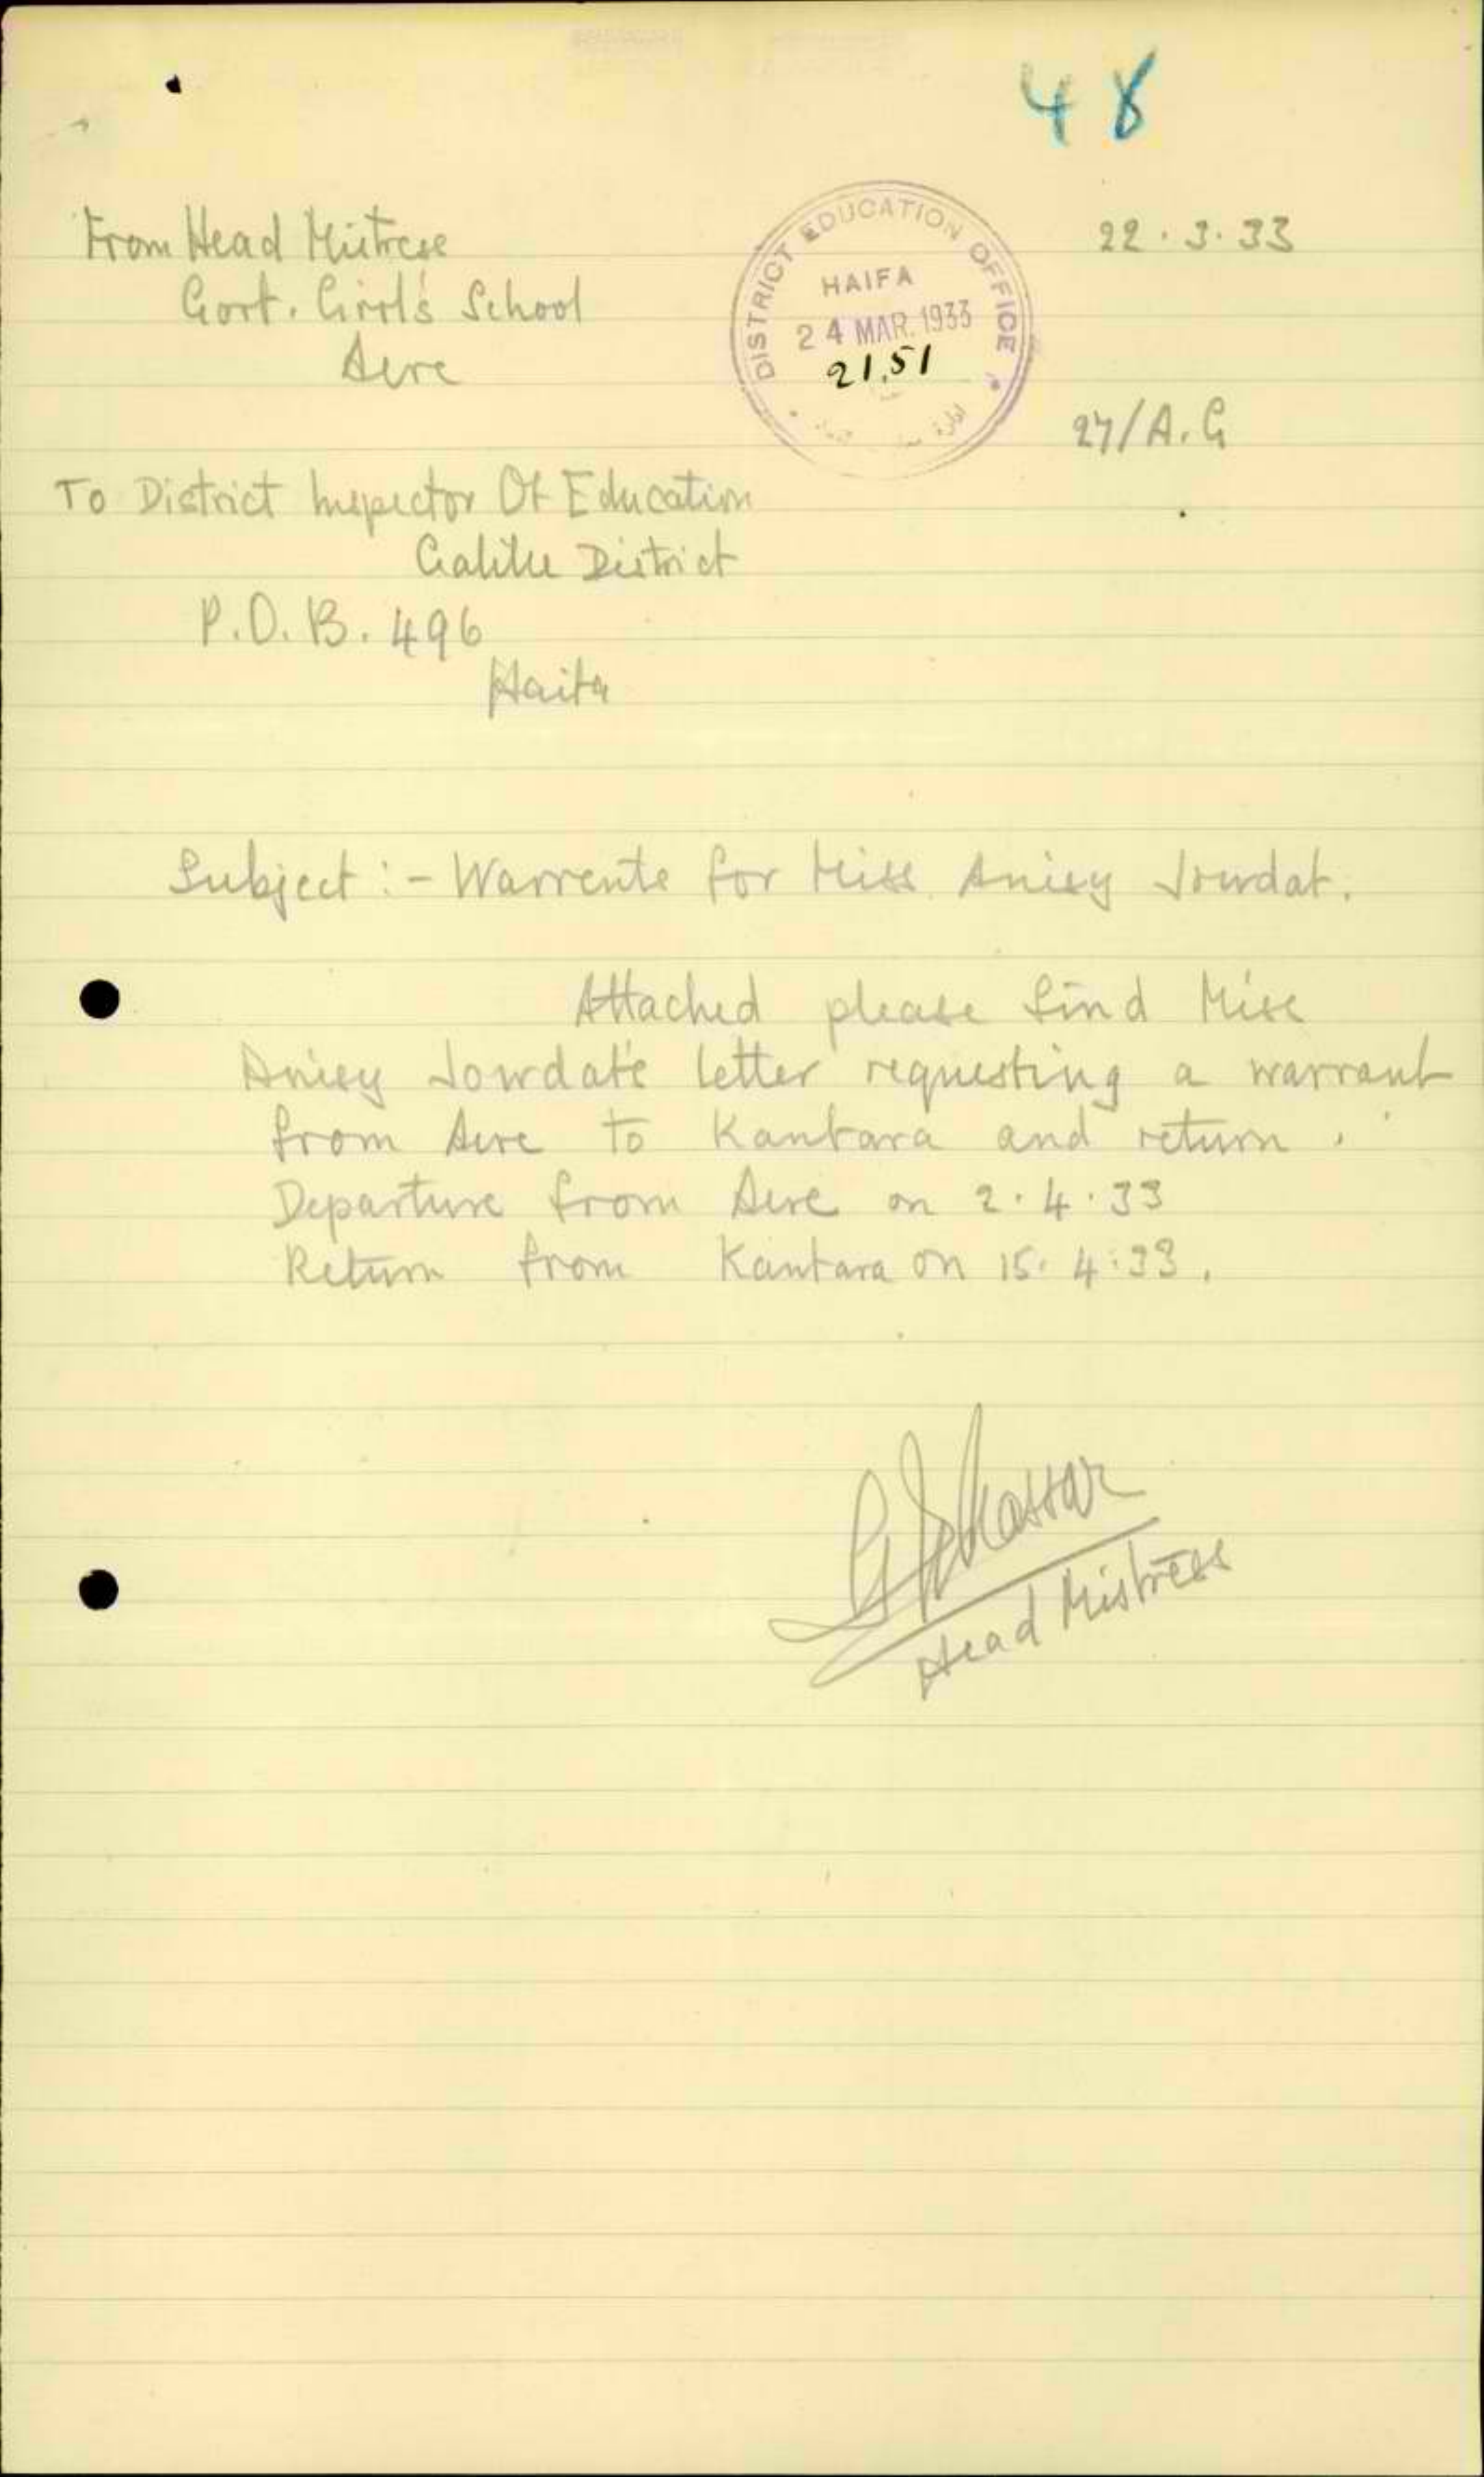 48
From Head Mistress
Govt. Girl's School
Acre
22.3.33
DISTRICT EDUCATION OFFICE
HAIFA
24 MAR. 1933
21.51
27/A.G
To District Inspector Of Education
Galilee District
P.O.B. 496
Haifa
Subject :- Warrente for Miss Anisy Jowdat.
Attached please find Miss
Anisy Jowdat's letter requesting a warrant
from Acre to Kantara and return.
Departure from Acre on 2.4.33
Return from Kantara on 15.4.33.
Head Mistress